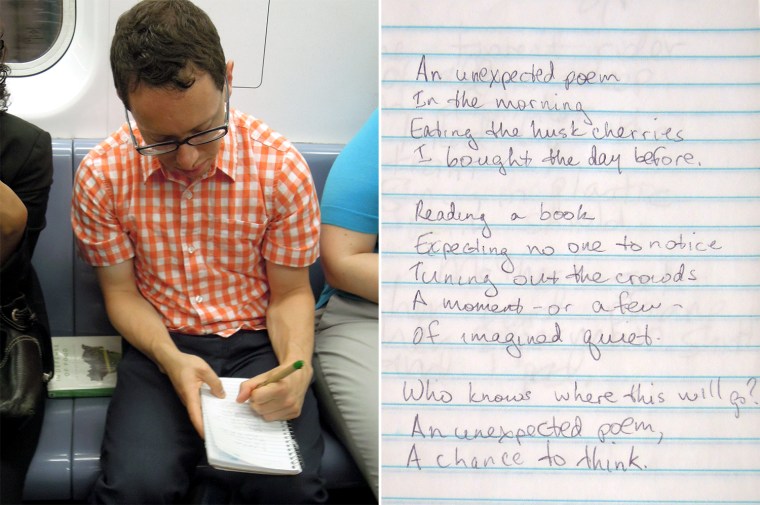 An unexpected poem
In the morning
Eating the husk cherries
I bought the day before.
Reading a book
Expecting no one to notice
Tuning out the crowds
A moment - or a few -
Of imagined quiet.
Who knows where this will go?
An unexpected poem,
A chance to think.